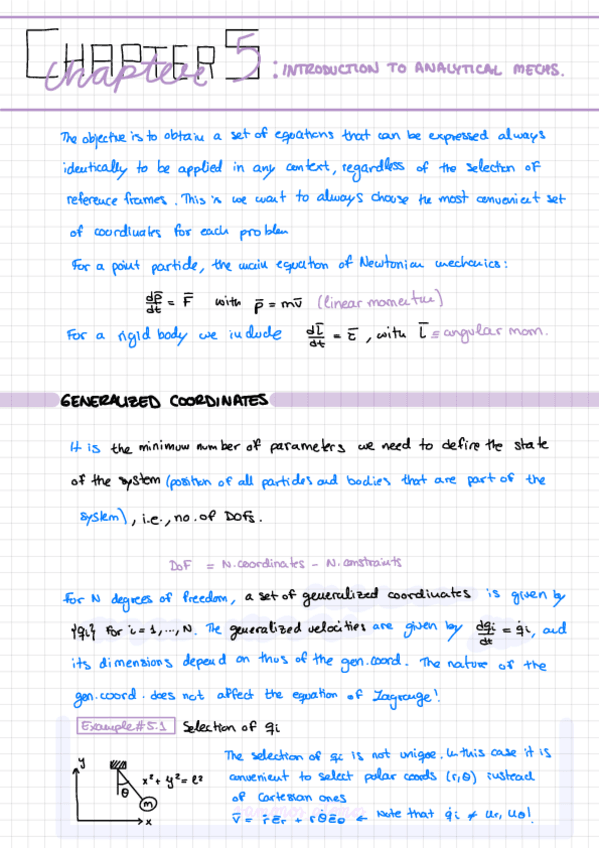 CHAPTER 5 : INTRODUCTION TO ANALYTICAL MECHS.
chapter
The objective is to obtain a set of equations that can be expressed always
identically to be applied in any context, regardless of the selection of
reference frames. This is we want to always choose the most convenient set
of coordinates for each problem
For a point particle, the main equation of Newtonian mechanics:
dp̄/dt = F̄ with p̄ = mv̄ (linear momentum)
For a rigid body we include dL̄/dt = τ̄, with L̄ ≡ angular mom.
GENERALIZED COORDINATES
It is the minimum number of parameters we need to define the state
of the system (position of all particles and bodies that are part of the
system), i.e., no. of DOFs.
DoF = N.coordinates − N.constraints
For N degrees of freedom, a set of generalized coordinates is given by
{qi} for i = 1, ..., N. The generalized velocities are given by dqi/dt = q̇i, and
its dimensions depend on thus of the gen.coord. The nature of the
gen.coord. does not affect the equation of Lagrange!
Example #5.1 Selection of qi
The selection of qi is not unique. In this case it is
convenient to select polar coords (r,θ) instead
of Cartesian ones
v̄ = ṙēr + rθ̇ēθ ← Note that q̇i ≠ ur, uθ!
y
x² + y² = l²
θ
m
x